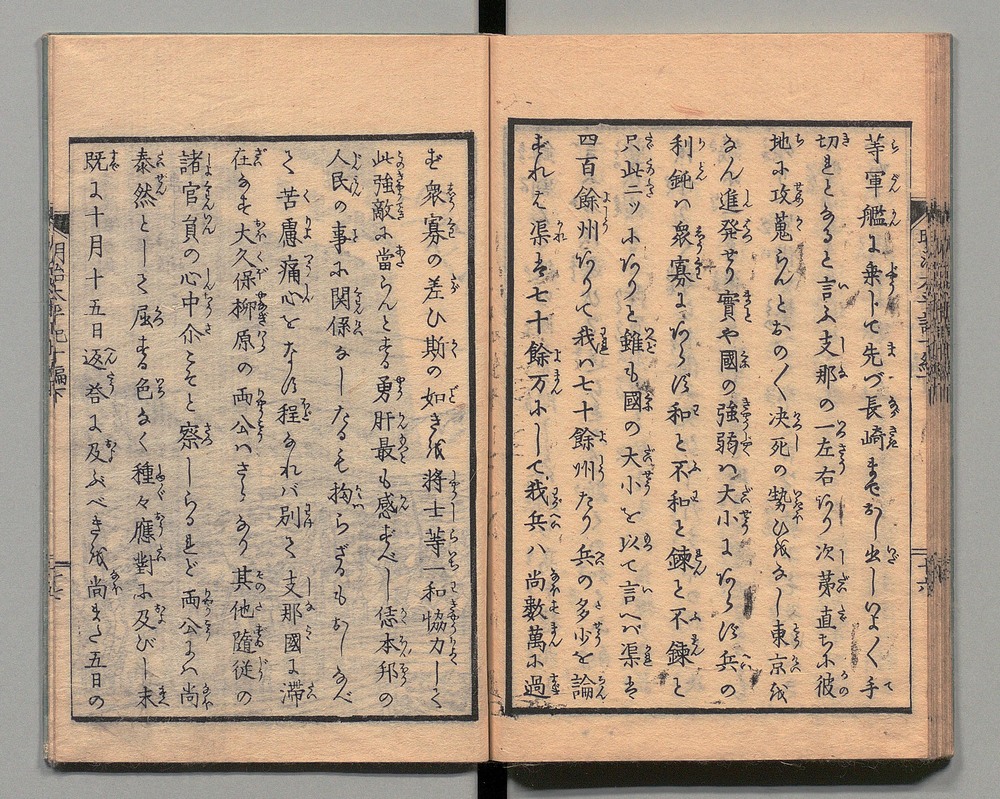 等軍艦に乗して先づ長崎まで出しいよ〱手
切れとなると言ふ支那の一左右あり次第直ちに彼
地に攻蒐らんとおの〱决死の勢ひをなし東京を
なん進発せり實や國の強弱ハ大小にあらず兵の
利鈍ハ衆寡にあらず和と不和と錬と不錬と
只此二ッにありと雖も國の大小を以て言へバ渠は
四百餘州ありて我ハ七十餘州たり兵の多少を論
ずれば渠は七十餘万にして我兵ハ尚數萬に過
ず衆寡の差ひ斯の如きを將士等一和協力して
此強敵に當らんとする勇肝最も感ずべし恁本邦の
人民の事に関係なしたるも拘らざるもおしなべ
て苦慮痛心をなす程なれバ别て支那國に滞
在なす大久保柳原の両公ハさらなり其他隨従の
諸官員の心中尒こそと察しらるれど両公にハ尚
泰然として屈する色なく種々應對に及びし末
既に十月十五日返荅に及ぶべきを尚また五日の
明治太平記十編下